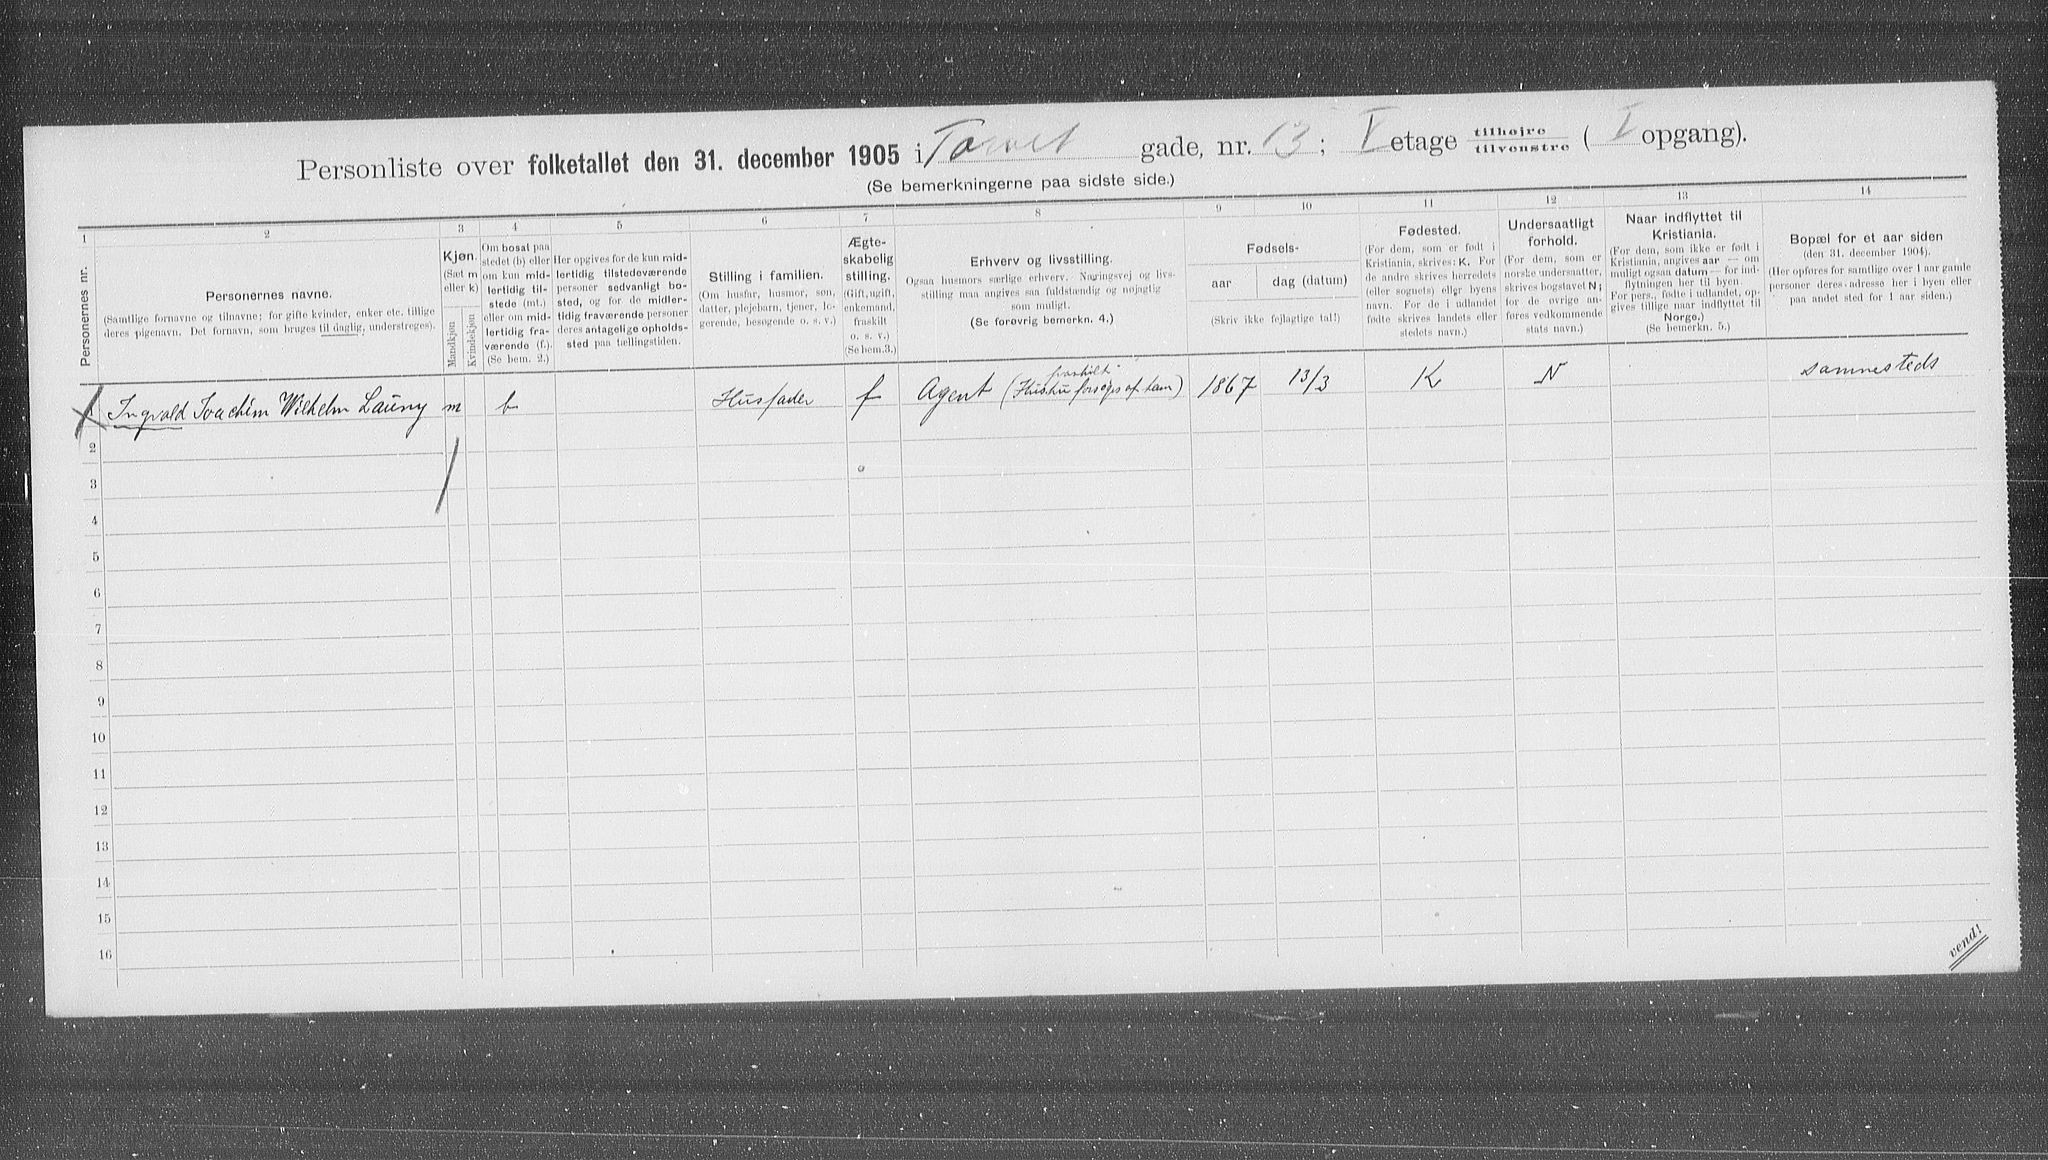 Personliste over folketallet den 31. december 1905 i Torvet gade, nr. 13; V etage tilhøjre tilvenstre ( I opgang).
(Se bemerkningerne paa sidste side.)
1 2 3 4 5 6 7 8 9 10 11 12 13 14
Personernes nr.
Personernes navne.
(Samtlige fornavne og tilnavne; for gifte kvinder, enker etc. tillige
deres pigenavn. Det fornavn, som bruges til daglig, understreges).
Kjøn.
(Sæt m
eller k)
Mandkjøn
Kvindekjøn
Om bosat paa
stedet (b) eller
om kun mid-
lertidig til-
stede (mt.)
eller om mid-
lertidig fra-
værende (f.).
(Se bem. 2.)
Her opgives for de kun mid-
lertidig tilstedeværende
personer sedvanligt bo-
sted, og for de midler-
tidig fraværende personer
deres antagelige opholds-
sted paa tællingstiden.
Stilling i familien.
(Om husfar, husmor, søn,
datter, plejebarn, tjener, lo-
gerende, besøgende o. s. v.)
Ægte-
skabelig
stilling.
(Gift, ugift,
enkemand,
fraskilt
o. s. v.)
(Se bem.3.)
Erhverv og livsstilling.
Ogsaa husmors særlige erhverv. Næringsvej og livs-
stilling maa angives saa fuldstændig og nøjagtig
som muligt.
(Se forøvrig bemerkn. 4.)
Fødsels-
aar dag (datum)
(Skriv ikke fejlagtige tal!)
Fødested.
(For dem, som er født i
Kristiania, skrives: K. For
de andre skrives herredets
(eller sognets) ellgr byens
navn. For de i udlandet
fødte skrives landets eller
stedets navn.)
Undersaatligt
forhold.
(For dem, som er
norske undersaatter,
skrives bogstavet N;
for de øvrige an-
føres vedkommende
stats navn.)
Naar indflyttet til
Kristiania.
(For dem, som ikke er født i
Kristiania, angives aar — om
muligt ogsaa datum — for ind-
flytningen her til byen.
For pers., fødte i udlandet, op-
gives tillige naar indflyttet til
Norge.)
(Se bemerkn. 5.)
Bopæl for et aar siden
(den 31. december 1904).
(Her opføres for samtlige over 1 aar gamle
personer deres adresse her i byen eller
paa andet sted for 1 aar siden.)
1 Ingvald Joachim Wilhelm Launy m b Husfader f Agent (fraskilt 1867 13/3 K N sammesteds
2
3
4
5
6
7
8
9
10
11
12
13
14
15
16
vend!